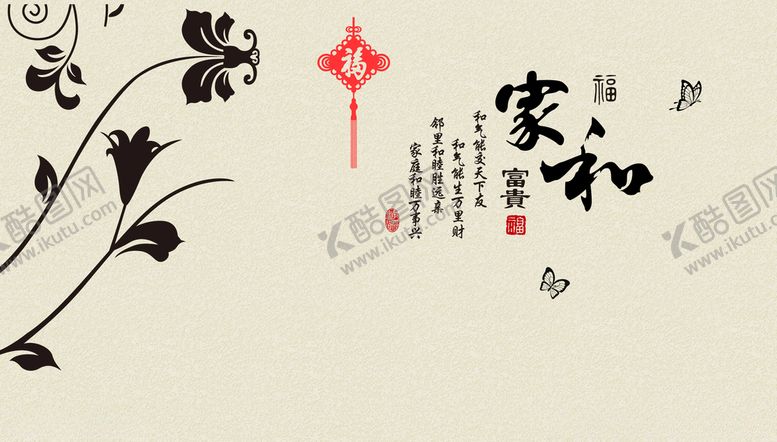 福
福
家和
富貴
福
和气能交天下友
和气能生万里财
邻里和睦胜远亲
家庭和睦万事兴
酷图网
www.ikutu.com
酷图网
www.ikutu.com
酷图网
www.ikutu.com